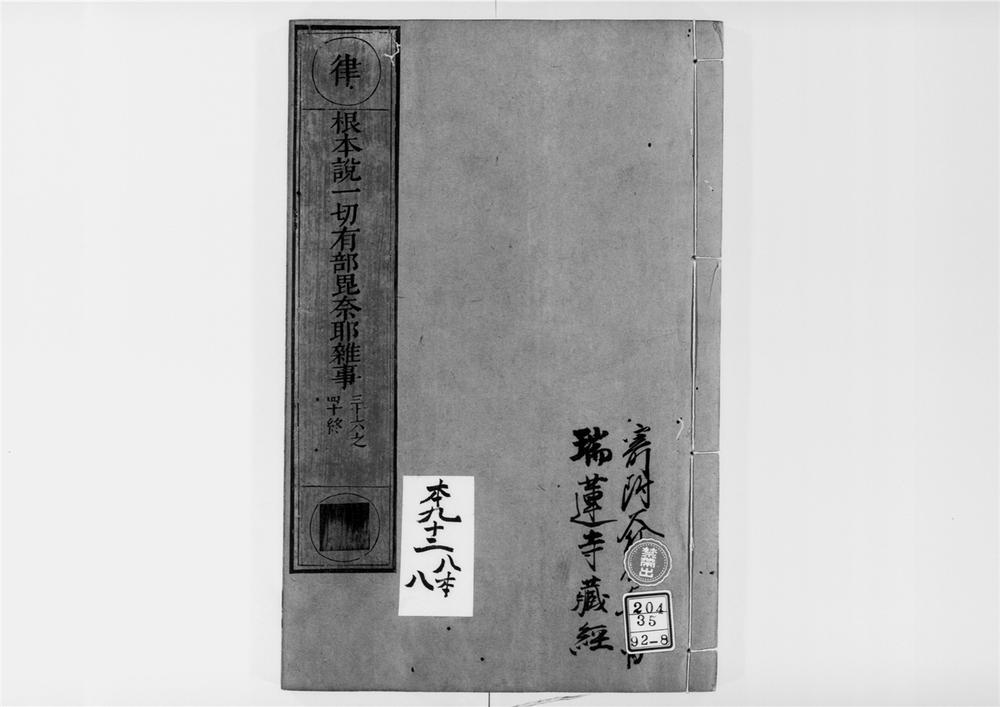 律
根本說一切有部毘奈耶雜事
三十六之
四十終
寄附
瑞蓮寺藏經
本九十二
八本
八
禁帶出
204
35
92-8